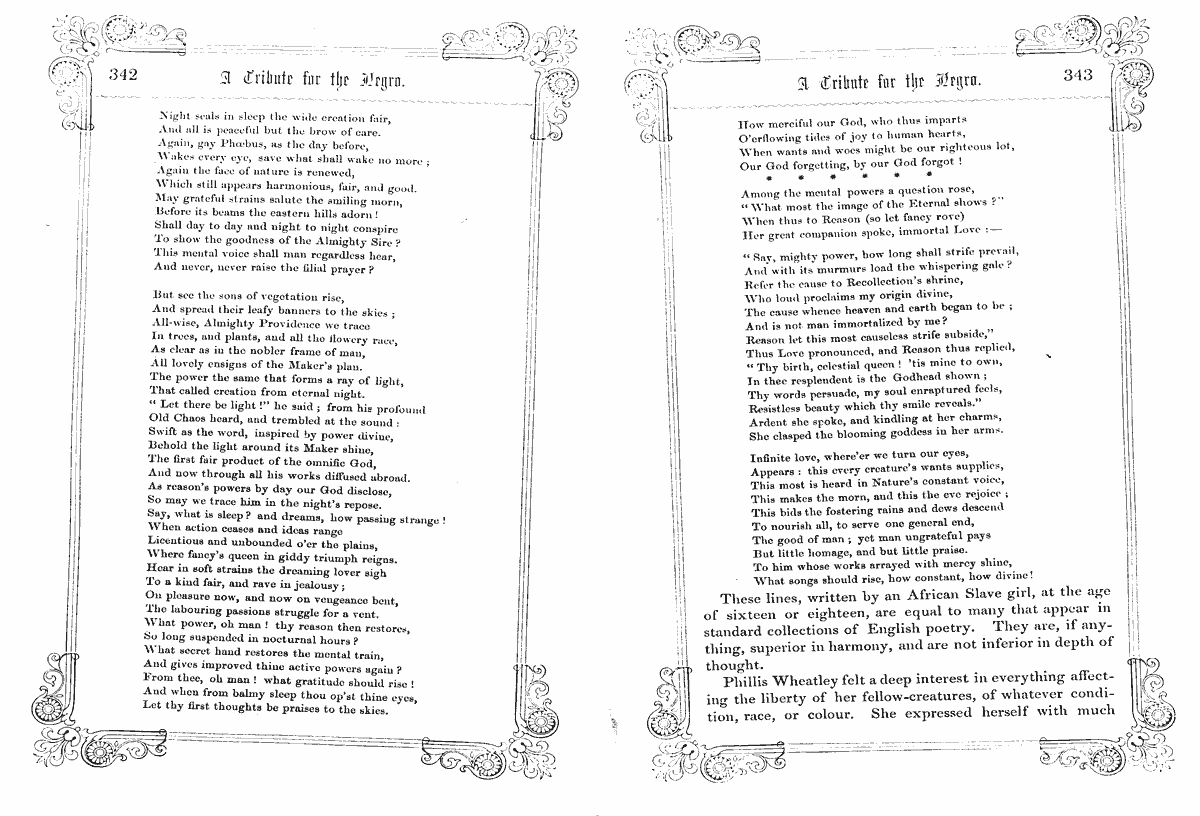 342
A Tribute for the Negro.
Night seals in sleep the wide creation fair,
And all is peaceful but the brow of care.
Again, gay Phœbus, as the day before,
Wakes every eye, save what shall wake no more ;
Again the face of nature is renewed,
Which still appears harmonious, fair, and good.
May grateful strains salute the smiling morn,
Before its beams the eastern hills adorn !
Shall day to day and night to night conspire
To show the goodness of the Almighty Sire ?
This mental voice shall man regardless hear,
And never, never raise the filial prayer ?
But see the sons of vegetation rise,
And spread their leafy banners to the skies ;
All-wise, Almighty Providence we trace
In trees, and plants, and all the flowery race,
As clear as in the nobler frame of man,
All lovely ensigns of the Maker's plan.
The power the same that forms a ray of light,
That called creation from eternal night.
“ Let there be light !” he said ; from his profound
Old Chaos heard, and trembled at the sound :
Swift as the word, inspired by power divine,
Behold the light around its Maker shine,
The first fair product of the omnific God,
And now through all his works diffused abroad.
As reason's powers by day our God disclose,
So may we trace him in the night's repose.
Say, what is sleep ? and dreams, how passing strange !
When action ceases and ideas range
Licentious and unbounded o'er the plains,
Where fancy's queen in giddy triumph reigns.
Hear in soft strains the dreaming lover sigh
To a kind fair, and rave in jealousy ;
On pleasure now, and now on vengeance bent,
The labouring passions struggle for a vent.
What power, oh man ! thy reason then restores,
So long suspended in nocturnal hours ?
What secret hand restores the mental train,
And gives improved thine active powers again ?
From thee, oh man ! what gratitude should rise !
And when from balmy sleep thou op'st thine eyes,
Let thy first thoughts be praises to the skies.
A Tribute for the Negro.
343
How merciful our God, who thus imparts
O'erflowing tides of joy to human hearts,
When wants and woes might be our righteous lot,
Our God forgetting, by our God forgot !
* * * * * *
Among the mental powers a question rose,
“ What most the image of the Eternal shows ?”
When thus to Reason (so let fancy rove)
Her great companion spoke, immortal Love :—
“ Say, mighty power, how long shall strife prevail,
And with its murmurs load the whispering gale ?
Refer the cause to Recollection's shrine,
Who loud proclaims my origin divine,
The cause whence heaven and earth began to be ;
And is not man immortalized by me ?
Reason let this most causeless strife subside,”
Thus Love pronounced, and Reason thus replied,
“ Thy birth, celestial queen ! 'tis mine to own,
In thee resplendent is the Godhead shown ;
Thy words persuade, my soul enraptured feels,
Resistless beauty which thy smile reveals.”
Ardent she spoke, and kindling at her charms,
She clasped the blooming goddess in her arms.
Infinite love, where'er we turn our eyes,
Appears : this every creature's wants supplies,
This most is heard in Nature's constant voice,
This makes the morn, and this the eve rejoice ;
This bids the fostering rains and dews descend
To nourish all, to serve one general end,
The good of man ; yet man ungrateful pays
But little homage, and but little praise.
To him whose works arrayed with mercy shine,
What songs should rise, how constant, how divine !
These lines, written by an African Slave girl, at the age
of sixteen or eighteen, are equal to many that appear in
standard collections of English poetry. They are, if any-
thing, superior in harmony, and are not inferior in depth of
thought.
Phillis Wheatley felt a deep interest in everything affect-
ing the liberty of her fellow-creatures, of whatever condi-
tion, race, or colour. She expressed herself with much